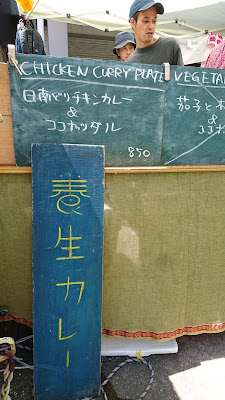 CHICKEN CURRY PLATE
日南どりチキンカレー
&
ココナッツダル
850
VEGETA
茄子と
&
ココナ
養生カレー